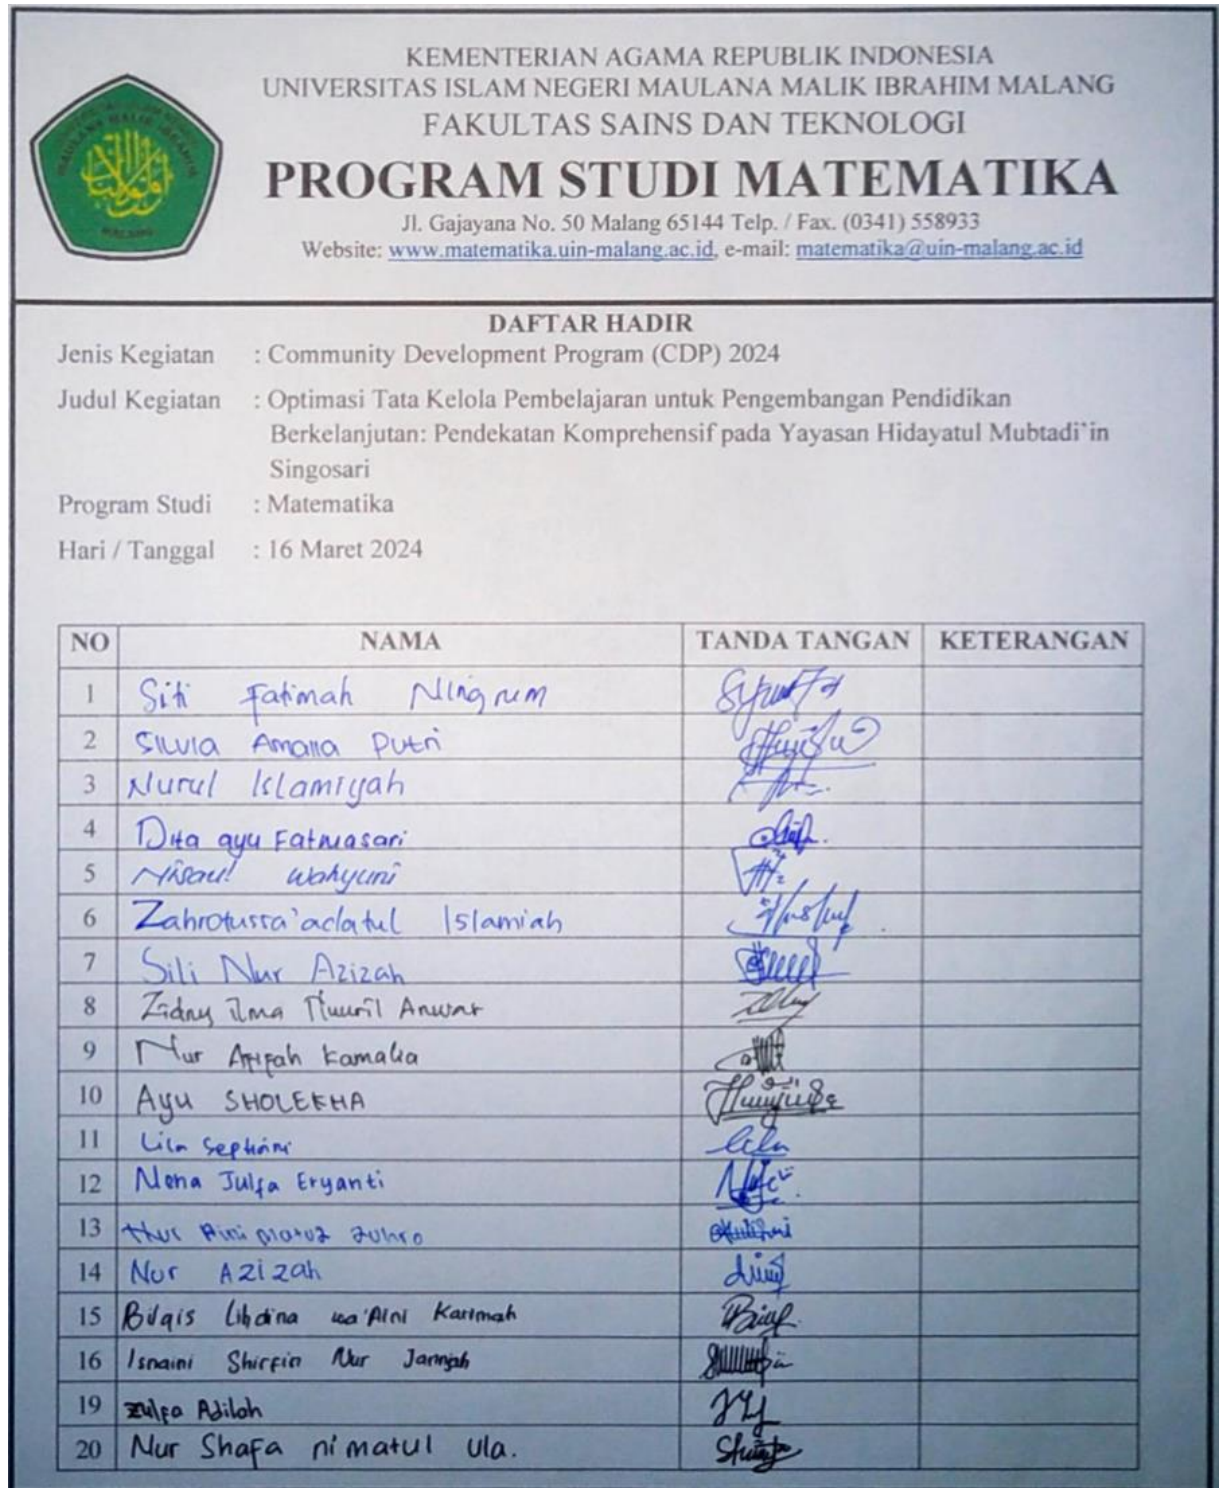 KEMENTERIAN AGAMA REPUBLIK INDONESIA
UNIVERSITAS ISLAM NEGERI MAULANA MALIK IBRAHIM MALANG
FAKULTAS SAINS DAN TEKNOLOGI
PROGRAM STUDI MATEMATIKA
Jl. Gajayana No. 50 Malang 65144 Telp. / Fax. (0341) 558933
Website: www.matematika.uin-malang.ac.id, e-mail: matematika@uin-malang.ac.id
DAFTAR HADIR
Jenis Kegiatan : Community Development Program (CDP) 2024
Judul Kegiatan : Optimasi Tata Kelola Pembelajaran untuk Pengembangan Pendidikan
Berkelanjutan: Pendekatan Komprehensif pada Yayasan Hidayatul Mubtadi`in
Singosari
Program Studi : Matematika
Hari / Tanggal : 16 Maret 2024
NO NAMA TANDA TANGAN KETERANGAN
1 Siti Fatimah Ningrum
2 Silvia Amalia Putri
3 Nurul Islamiyah
4 Dita ayu Fatmasari
5 Nisaul Wahyuni
6 Zahrotussa'adatul Islamiah
7 Sili Nur Azizah
8 Zidny ilma Nuuril Anwar
9 Nur Afifah Kamalia
10 Ayu SHOLEKHA
11 Lila Septiani
12 Nena Julfa Eryanti
13 Nur Aini zuhro
14 Nur Azizah
15 Bilqis Libdina wa'Aini Karimah
16 Isnaini Shirfin Nur Jannah
19 Zulfa Adilah
20 Nur Shafa nimatul ula.